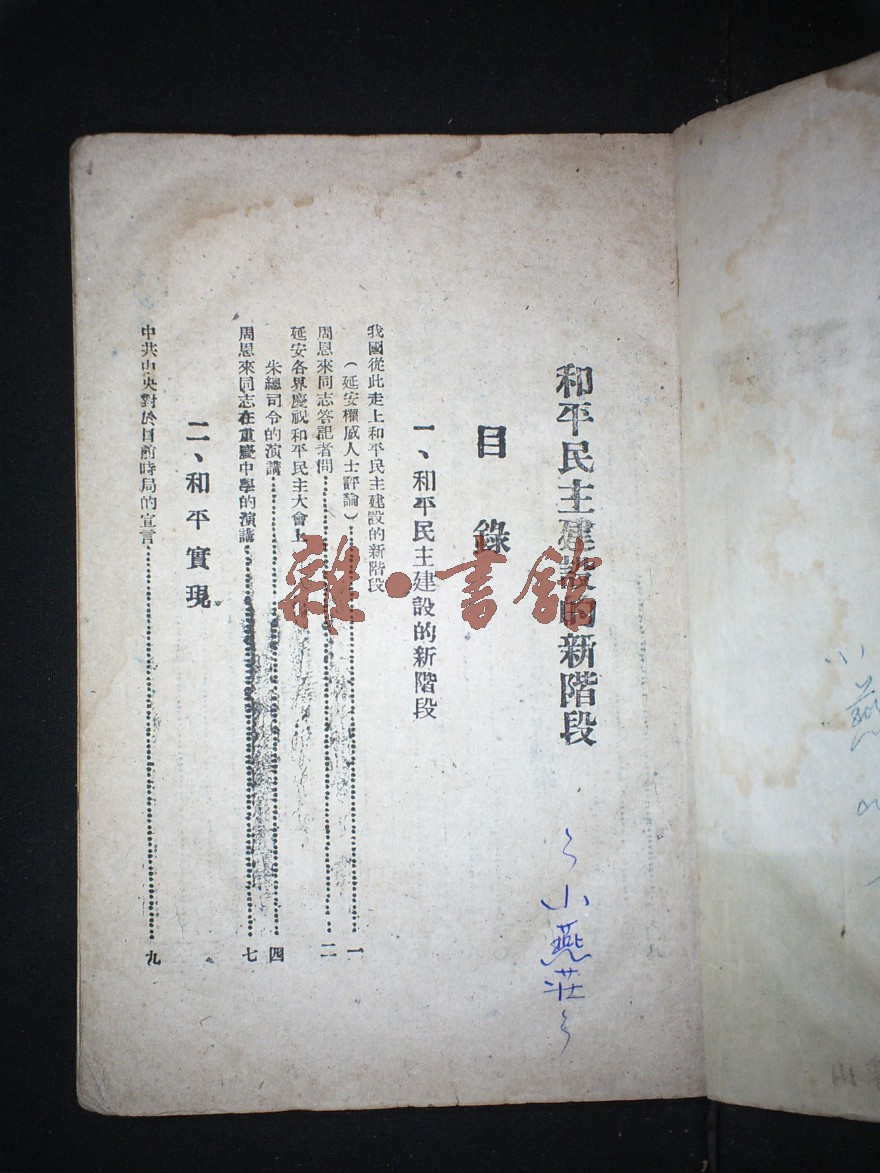 和平民主建設的新階段
目錄
一、和平民主建設的新階段
我國從此走上和平民主建設的新階段
（延安權威人士評論）⋯⋯一
周恩來同志答記者問⋯⋯二
延安各界慶祝和平民主大會上
朱總司令的演講⋯⋯四
周恩來同志在重慶中學的演講⋯⋯七
二、和平實現
中共中央對於目前時局的宣言⋯⋯九
小燕莊
雜·書館
小燕